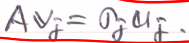 A v_j = σ_j u_j.